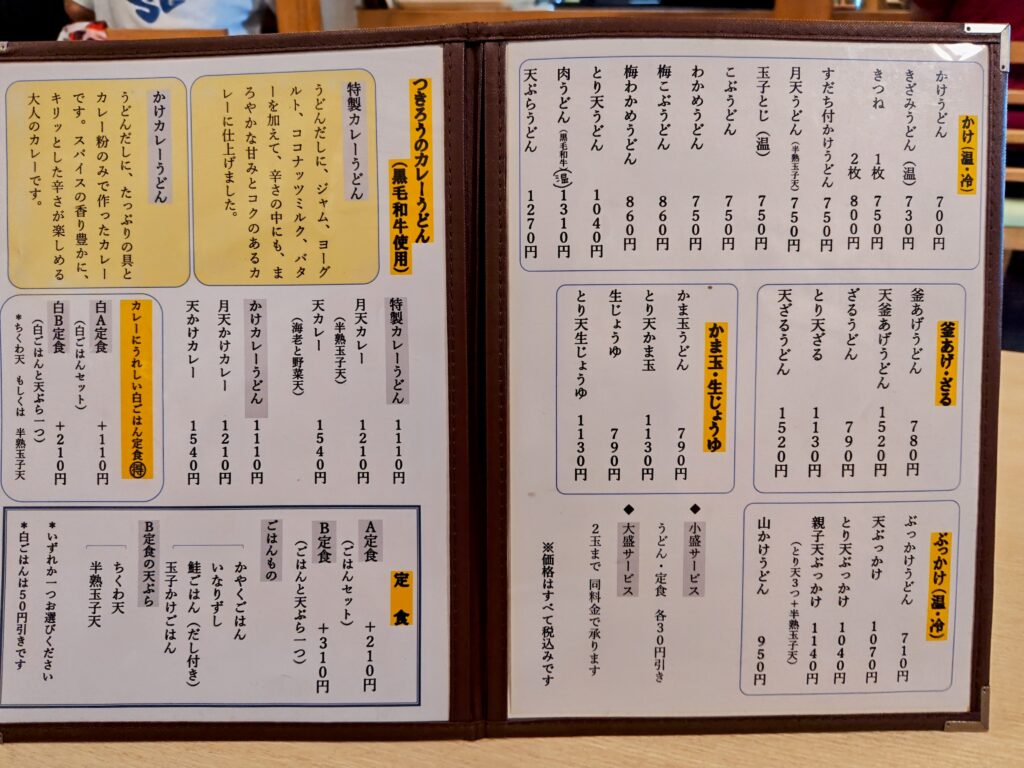 かけ(温・冷)
かけうどん 700円
きざみうどん(温) 730円
きつね 1枚 750円
2枚 800円
すだち付かけうどん 750円
月天うどん(半熟玉子天) 750円
玉子とじ(温) 750円
こぶうどん 750円
わかめうどん 750円
梅こぶうどん 860円
梅わかめうどん 860円
とり天うどん 1040円
肉うどん(黒毛和牛) 1310円
天ぷらうどん 1270円
釜あげ・ざる
釜あげうどん 780円
天釜あげうどん 1520円
ざるうどん 790円
とり天ざる 1130円
天ざるうどん 1520円
かま玉・生じょうゆ
かま玉うどん 790円
とり天かま玉 1130円
生じょうゆ 790円
とり天生じょうゆ 1130円
ぶっかけ(温・冷)
ぶっかけうどん 710円
天ぶっかけ 1070円
とり天ぶっかけ 1040円
親子天ぶっかけ 1140円
(とり天3つ+半熟玉子天)
山かけうどん 950円
◆小盛サービス
うどん・定食 各30円引き
◆大盛サービス
2玉まで 同料金で承ります
※価格はすべて税込みです
つきろうのカレーうどん
(黒毛和牛使用)
特製カレーうどん
うどんだしに、ジャム、ヨーグ
ルト、ココナッツミルク、バタ
ーを加えて、辛さの中にも、ま
ろやかな甘みとコクのあるカ
レーに仕上げました。
かけカレーうどん
うどんだしに、たっぷりの具と
カレー粉のみで作ったカレー
です。スパイスの香り豊かに、
キリッとした辛さが楽しめる
大人のカレーです。
特製カレーうどん 1110円
月天カレー 1210円
(半熟玉子天)
天カレー 1540円
(海老と野菜天)
かけカレーうどん 1110円
月天かけカレー 1210円
天かけカレー 1540円
カレーにうれしい白ごはん定食㊝
白A定食 +110円
(白ごはんセット)
白B定食 +210円
(白ごはんと天ぷら一つ)
*ちくわ天 もしくは 半熟玉子天
定食
A定食 +210円
(ごはんセット)
B定食 +310円
(ごはんと天ぷら一つ)
ごはんもの
かやくごはん
いなりずし
鮭ごはん(だし付き)
玉子かけごはん
B定食の天ぷら
ちくわ天
半熟玉子天
*いずれか一つお選びください
*白ごはんは50円引きです